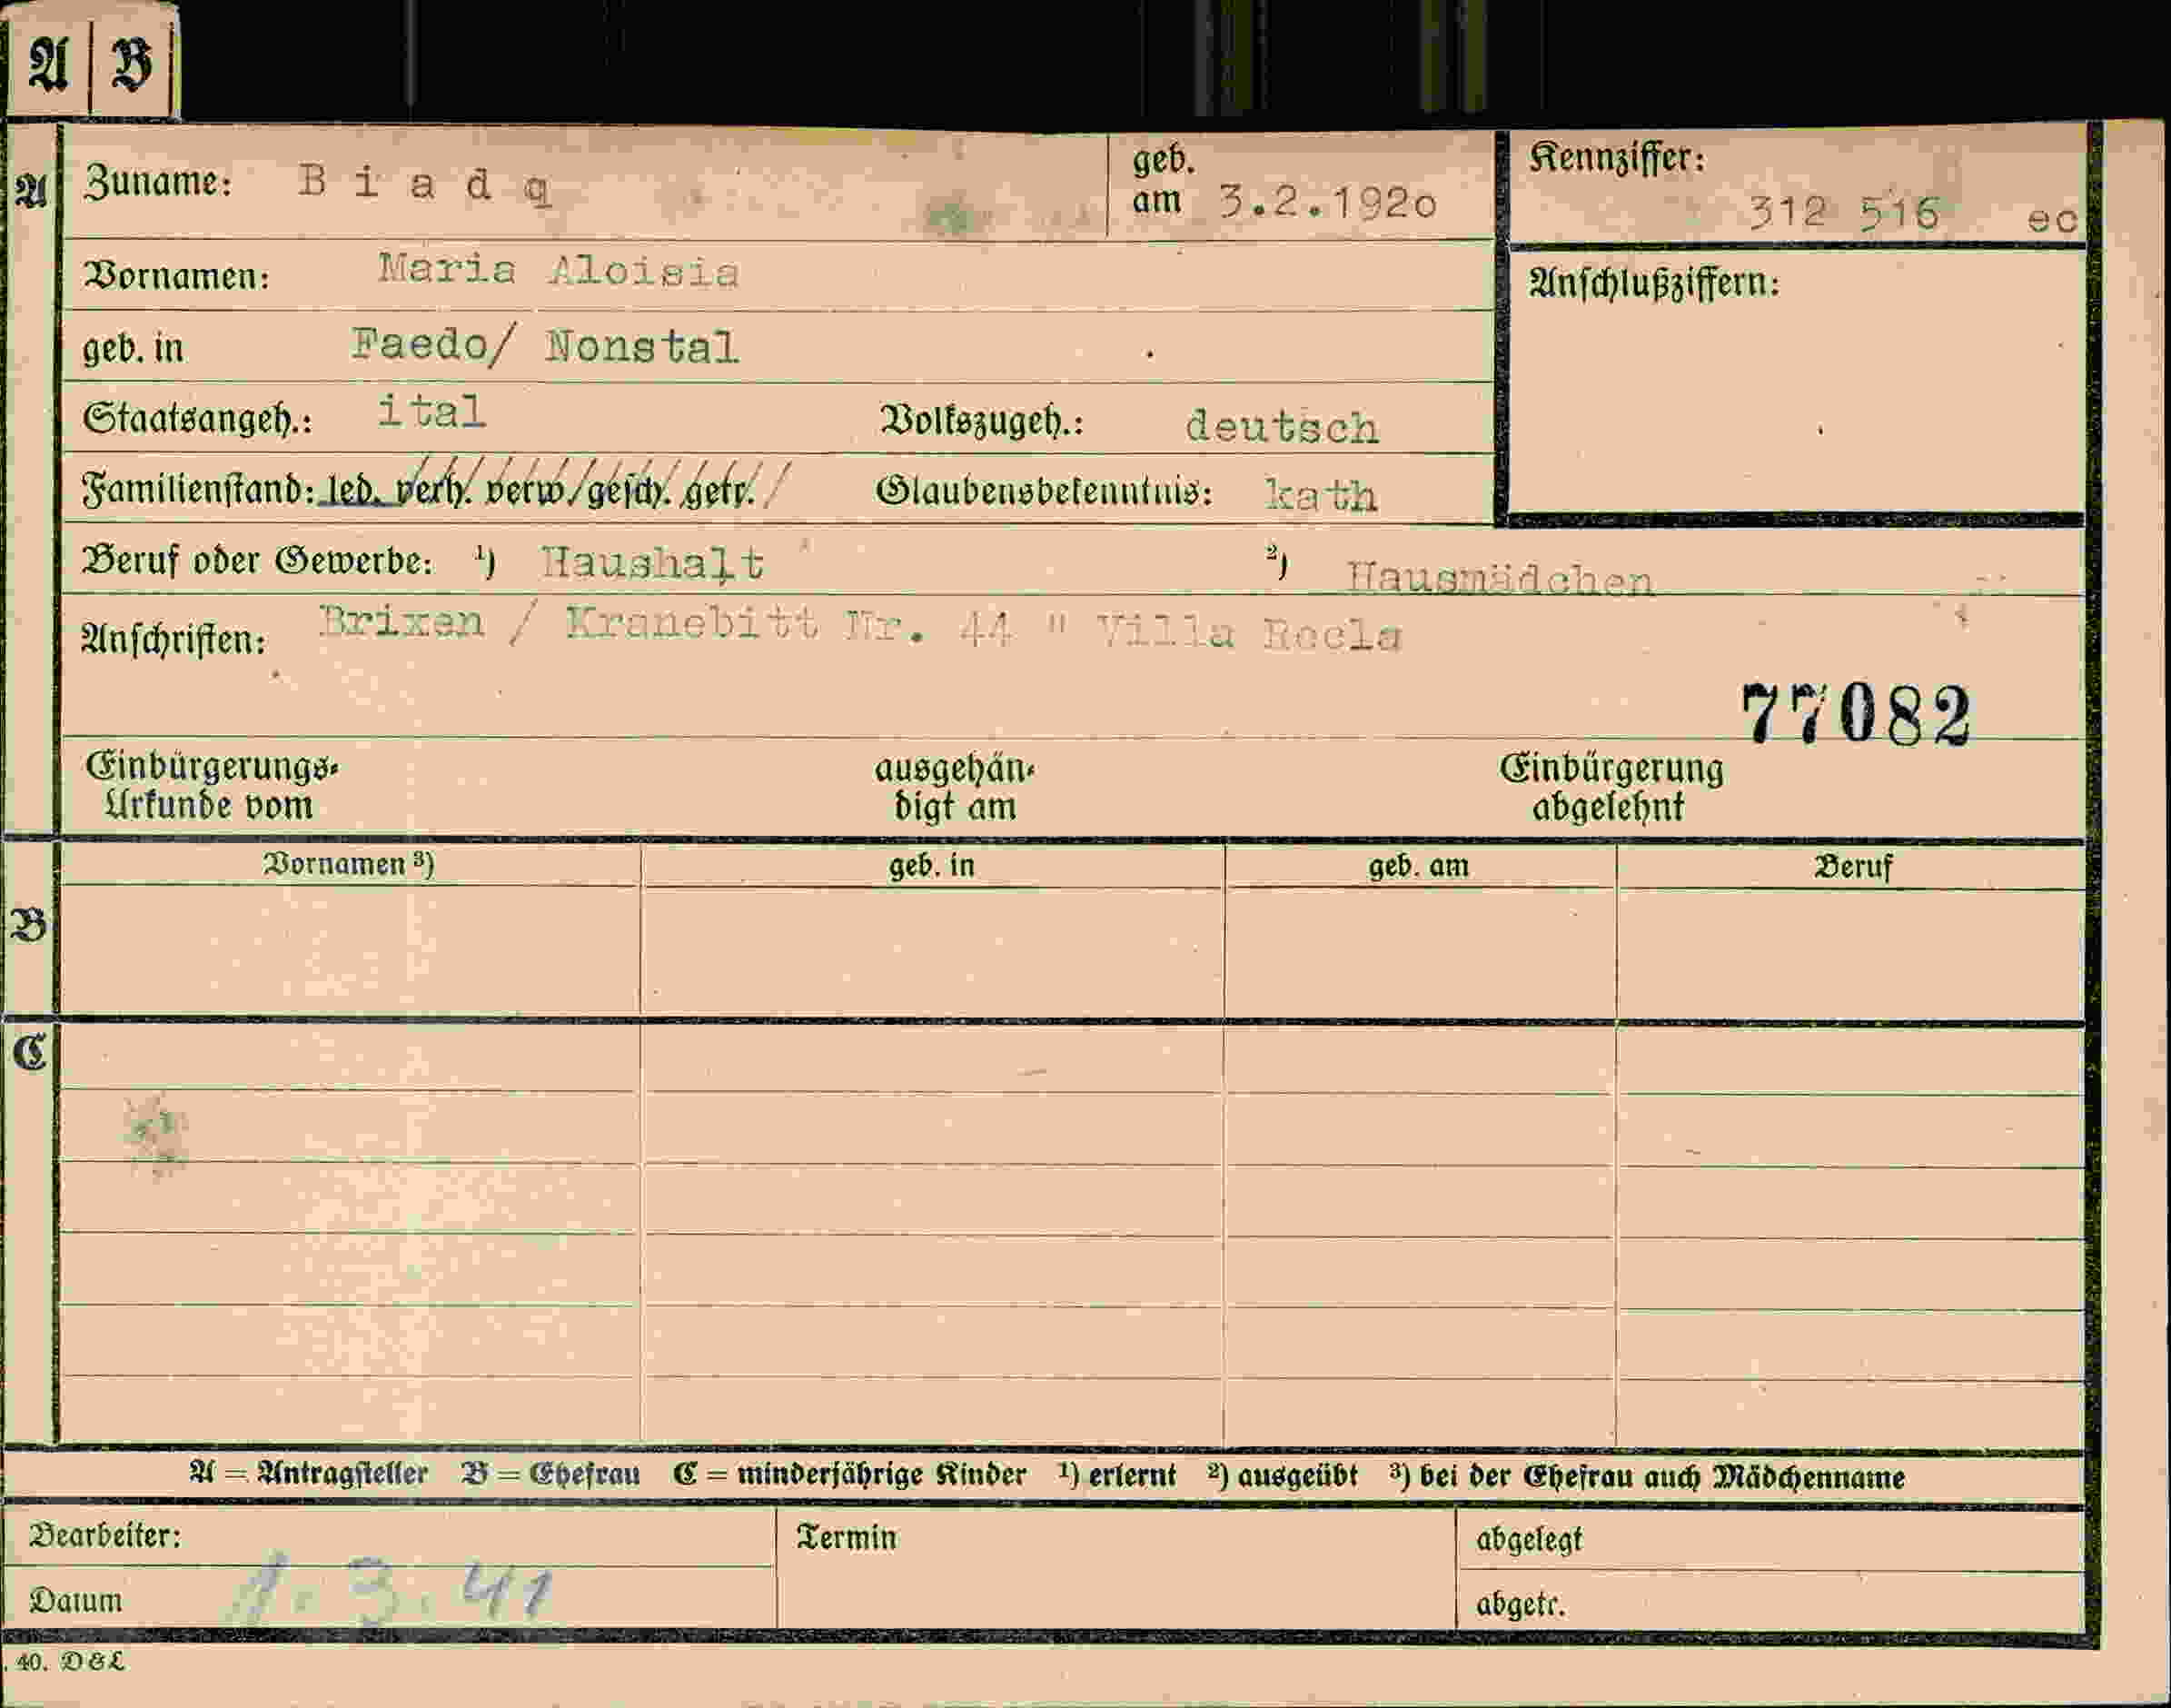 A B
A Zuname: B i a d q geb. am 3.2.192o Kennziffer: 312 516 ec
Vornamen: Maria Aloisia Anschlußziffern:
geb. in Faedo/ Nonstal
Staatsangeh.: ital Volkszugeh.: deutsch
Familienstand: led. verh. verw. gesch. getr. Glaubensbekenntnis: kath
Beruf oder Gewerbe: ¹) Haushalt ²) Hausmädchen
Anschriften: Brixen / Kranebitt Nr. 44 " Villa
77082
Einbürgerungs- ausgehän- Einbürgerung
Urkunde vom digt am abgelehnt
Vornamen ³) geb. in geb. am Beruf
B
C
A = Antragsteller B = Ehefrau C = minderjährige Kinder ¹) erlernt ²) ausgeübt ³) bei der Ehefrau auch Mädchenname
Bearbeiter: Termin abgelegt
Datum 1. 3. 41 abgetr.
. 40. D & L